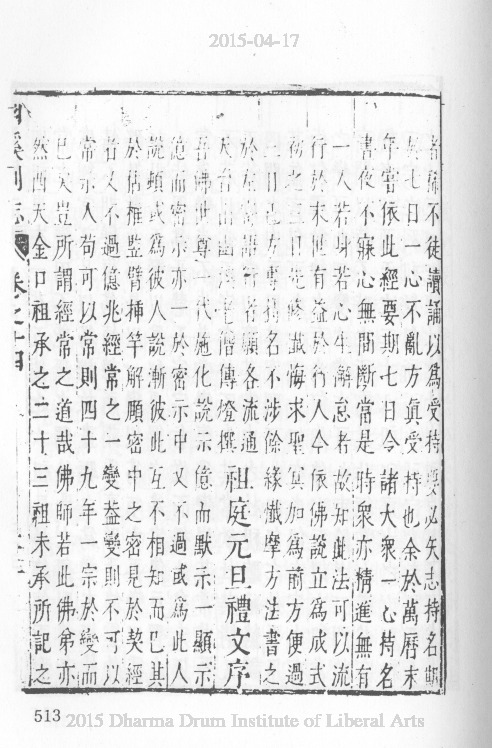 2015-04-17
者稱不徒讀誦以為受持要必矢志持名
於七日一心不亂方眞受持也余於萬曆末
年嘗依此經要期七日今諸大衆一心持名
晝夜不寐心無間斷當是時衆亦精進無有
一人若身若心生懈怠者故知此法可以流
行於末世有益於行人今依佛說立為成式
初之三日先修懺悔求聖冥加為前方便過
三日已方專持名不涉餘緣懺摩方法書之
於左寄語行者願各流通
天台山幽溪老僧傳燈撰 祖庭元旦禮文序
吾佛世尊一代施化說示億而默示一顯示
億而密示亦一於密示中又不過或為此人
說頓或為彼人說漸彼此互不相知而已其
於佔推監臂揷竿解願密中之密見於契經
者又不過億兆經常之一變益變則不可以
常示人苟可以常則四十九年一宗於變而
已矣豈所謂經常之道哉佛師若此佛弟亦
然西天金口祖承之二十三祖未承所記之
溪別志 卷之十四
513 2015 Dharma Drum Institute of Liberal Arts